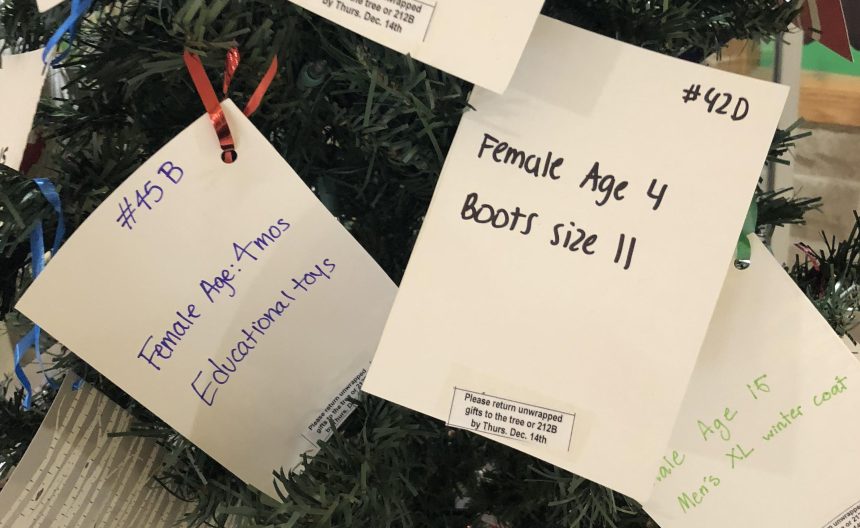 to the tree or 212B
by Thurs. Dec. 14th
#45 B
Female Age: 4 mos
Educational toys
Please return unwrapped
gifts to the tree or
by Thurs.
#42D
Female Age 4
Boots size 11
Please return unwrapped
gifts to the tree or 212B
by Thurs. Dec. 14th
Age 15
Men's XL winter coat